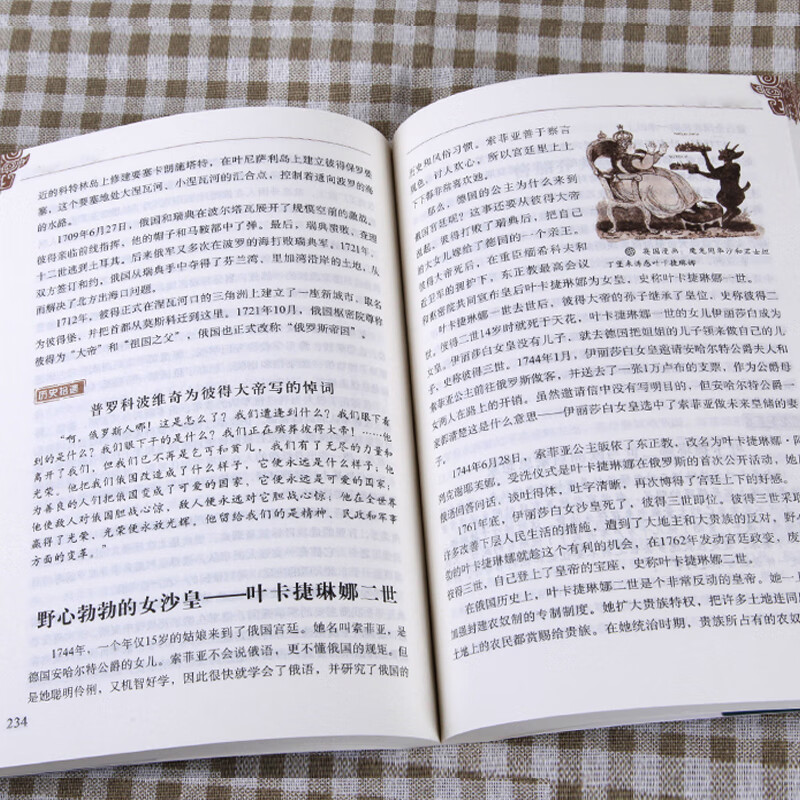 近的科特林岛上修建要塞卡朗施塔特，在叶尼萨利岛上建立彼得保罗要
塞，这个要塞地处大涅瓦河、小涅瓦河的汇合点，控制着通向波罗的海
的水路。
1709年6月27日，俄国和瑞典在波尔塔瓦展开了规模空前的激战。
彼得亲临前线指挥，他的帽子和马鞍都中了弹。最后，瑞典溃败，查理
十二世逃到土耳其。后来俄军又多次在波罗的海打败瑞典军。1721年，
双方签订和约，俄国从瑞典手中夺得了芬兰湾、里加湾沿岸的土地，从
而解决了北方出海口问题。
1712年，彼得正式在涅瓦河口的三角洲上建立了一座新城市，取名
为彼得堡，并把首都从莫斯科迁到这里。1721年10月，俄国枢密院尊称
彼得为“大帝”和“祖国之父”，俄国也正式改称“俄罗斯帝国”。
历史拾遗
普罗科波维奇为彼得大帝写的悼词
“啊，俄罗斯人哪！这是怎么了？我们遭逢到什么？我们眼下看
到的是什么？我们眼下干的是什么？我们正在殡葬彼得大帝！……他
离开了我们，但我们已不再是乞丐和贫儿，我们有了无尽的力量和
光荣。他把我们俄国改造成了什么样子，它便永远是什么样子；他
为善良的人们把俄国变成了可爱的国家，它便永远是可爱的国家；
他使敌人对俄国胆战心惊，敌人便永远对它胆战心惊；他在全世界
赢得了光荣，光荣便永放光辉。他留给我们的是精神、民政和军事
方面的变革。”
野心勃勃的女沙皇——叶卡捷琳娜二世
1744年，一个年仅15岁的姑娘来到了俄国宫廷。她名叫索菲亚，是
德国安哈尔特公爵的女儿。索菲亚不会说俄语，更不懂俄国的规矩。但
是她聪明伶俐，又机智好学，因此很快就学会了俄语，并研究了俄国的
234
历史和风俗习惯。索菲亚善于察言
观色，讨人欢心，所以宫廷里上上
下下都非常喜欢她。
那么，德国的公主为什么来到
俄国宫廷呢？这事还要从彼得大帝
说起。彼得打败了瑞典后，把自己
的大女儿嫁给了德国的一个亲王。
彼得大帝死后，在重臣缅希科夫和
近卫军的拥护下，东正教最高会议
和枢密院共同宣布皇后叶卡捷琳娜为女皇，史称叶卡捷琳娜一世。
英国漫画：魔鬼用华沙和君士坦
丁堡来诱惑叶卡捷琳娜
叶卡捷琳娜一世去世后，彼得大帝的孙子继承了皇位，史称彼得二
世。彼得二世14岁时就死于天花，叶卡捷琳娜一世的女儿伊丽莎白成为
女皇。伊丽莎白女皇没有儿子，就去德国把姐姐的儿子领来做自己的儿
子，史称彼得三世。1744年1月，伊丽莎白女皇邀请安哈尔特公爵夫人和
索菲亚公主前往俄罗斯做客，并送去了一张1万卢布的支票，作为公爵母
女两人在路上的开销。虽然邀请信中没有写明目的，但安哈尔特公爵一
家都清楚这是什么意思——伊丽莎白女皇选中了索菲亚做未来皇储的妻
子。
1744年6月28日，索菲亚公主皈依了东正教，改名为叶卡捷琳娜·阿
列克谢耶芙娜。受洗仪式是叶卡捷琳娜在俄罗斯的首次公开活动，她用
俄语问答问话，谈吐得体，吐字清晰，再次博得了宫廷上下的好感。
1761年底，伊丽莎白女沙皇死了，彼得三世即位，彼得三世采取
许多改善下层人民生活的措施，遭到了大地主和大贵族的反对，野心
勃勃的叶卡捷琳娜就趁这个有利的机会，在1762年发动宫廷政变，废
彼得三世，自己登上了皇帝的宝座，史称叶卡捷琳娜二世。
在俄国历史上，叶卡捷琳娜二世是个非常反动的皇帝。她一上
加强封建农奴制的专制制度。她扩大贵族特权，把许多土地连同
土地上的农民都赏赐给贵族。在她统治时期，贵族所占有的农奴